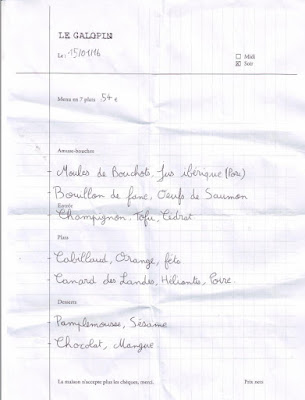 LE GALOPIN
Le : 15/01/16
Midi
Soir
Menu en 7 plats 54 €
Amuse-bouches
- Moules de Bouchots, Jus ibérique (Porc)
- Bouillon de fanc, Oeufs de Saumon
Entrée
- Champignon, Tofu, Cédrat
Plats
- Cabillaud, Orange, feta
- Canard des Landes, Héliantis, Poire
Desserts
- Pamplemousse, Sésame
- Chocolat, Mangue
La maison n'accepte plus les chèques, merci. Prix nets